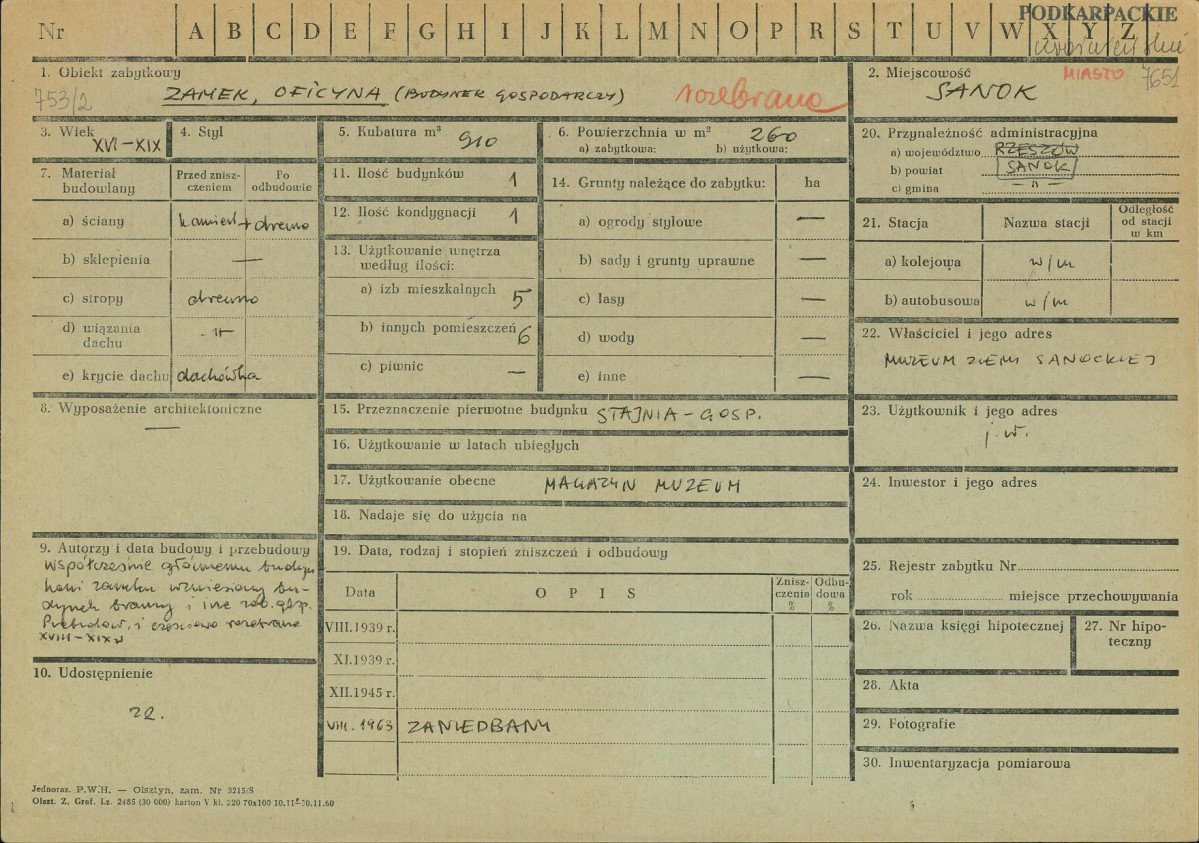 Nr A B C D E F G H I J K L M N O P R S T U V W X Y Z
PODKARPACKIE
1. Obiekt zabytkowy
753/2
ZAMEK, OFICYNA (BUDYNEK GOSPODARCZY) rozebrana
2. Miejscowość
MIASTO 7651
SANOK
3. Wiek
XVI-XIX
4. Styl
5. Kubatura m³ 910
6. Powierzchnia w m² 260
a) zabytkowa: b) użytkowa:
20. Przynależność administracyjna
a) województwo RZESZÓW
b) powiat SANOK
c) gmina - " -
7. Materiał budowlany
Przed znisz-
czeniem
Po
odbudowie
a) ściany kamień + drewno
b) sklepienia —
c) stropy drewno
d) wiązania
dachu - " -
e) krycie dachu dachówka
11. Ilość budynków 1
12. Ilość kondygnacji 1
13. Użytkowanie wnętrza
według ilości:
a) izb mieszkalnych 5
b) innych pomieszczeń 6
c) piwnic —
14. Grunty należące do zabytku: ha
a) ogrody stylowe —
b) sady i grunty uprawne —
c) lasy —
d) wody —
e) inne —
21. Stacja Nazwa stacji
Odległość
od stacji
w km
a) kolejowa w/m
b) autobusowa w/m
22. Właściciel i jego adres
MUZEUM ZIEMI SANOCKIEJ
8. Wyposażenie architektoniczne
—
15. Przeznaczenie pierwotne budynku STAJNIA - GOSP.
16. Użytkowanie w latach ubiegłych
17. Użytkowanie obecne MAGAZYN MUZEUM
18. Nadaje się do użycia na
23. Użytkownik i jego adres
j. w.
24. Inwestor i jego adres
9. Autorzy i data budowy i przebudowy
Współcześnie głównemu budyn
kowi zamku wzniesiony bu-
dynek bramny i inne zab. gosp.
Przebudow. i częściowo rozebrane
XVIII-XIX w
10. Udostępnienie
19. Data, rodzaj i stopień zniszczeń i odbudowy
Data O P I S
Znisz-
czenia
%
Odbu-
dowa
%
VIII.1939 r.
XI.1939 r.
XII.1945 r.
VIII. 1963 ZANIEDBANY
25. Rejestr zabytku Nr
rok miejsce przechowywania
26. Nazwa księgi hipotecznej
27. Nr hipo-
teczny
28. Akta
29. Fotografie
30. Inwentaryzacja pomiarowa
Jednoraz. P.W.H. — Olsztyn, zam. Nr 3215/S
Olszt. Z. Graf. Lz. 2485 (30 000) karton V kl. 220 70x100 10.11-30.11.60